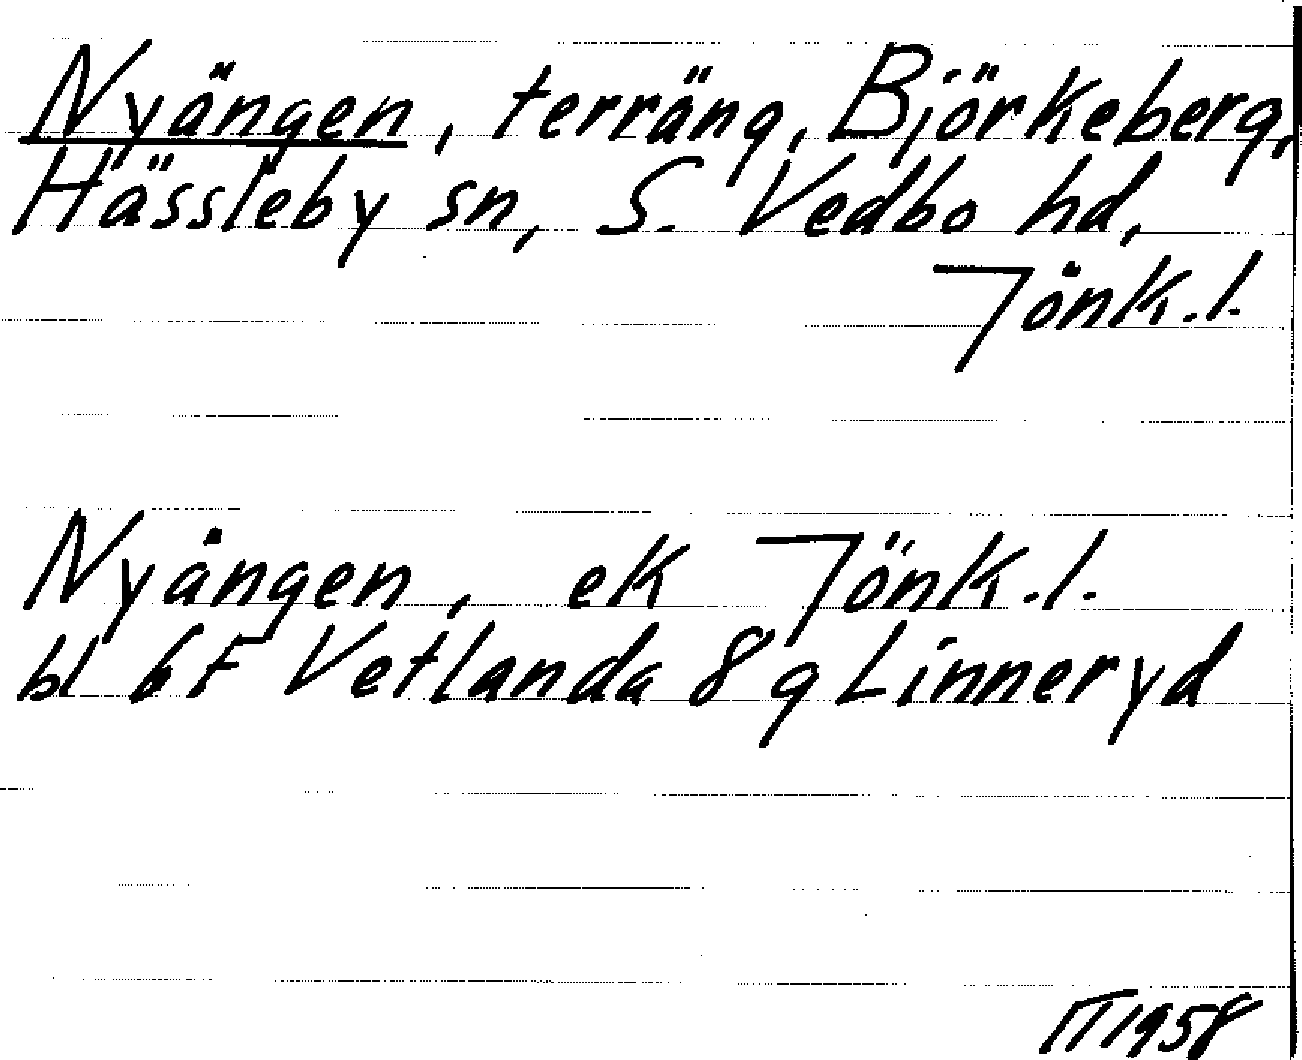 Nyängen, terräng, Björkeberg,
Hässleby sn, S. Vedbo hd,
Jönk.l.
Nyängen, ek Jönk.l.
bl 6F Vetlanda 8g Linneryd
IT 1958